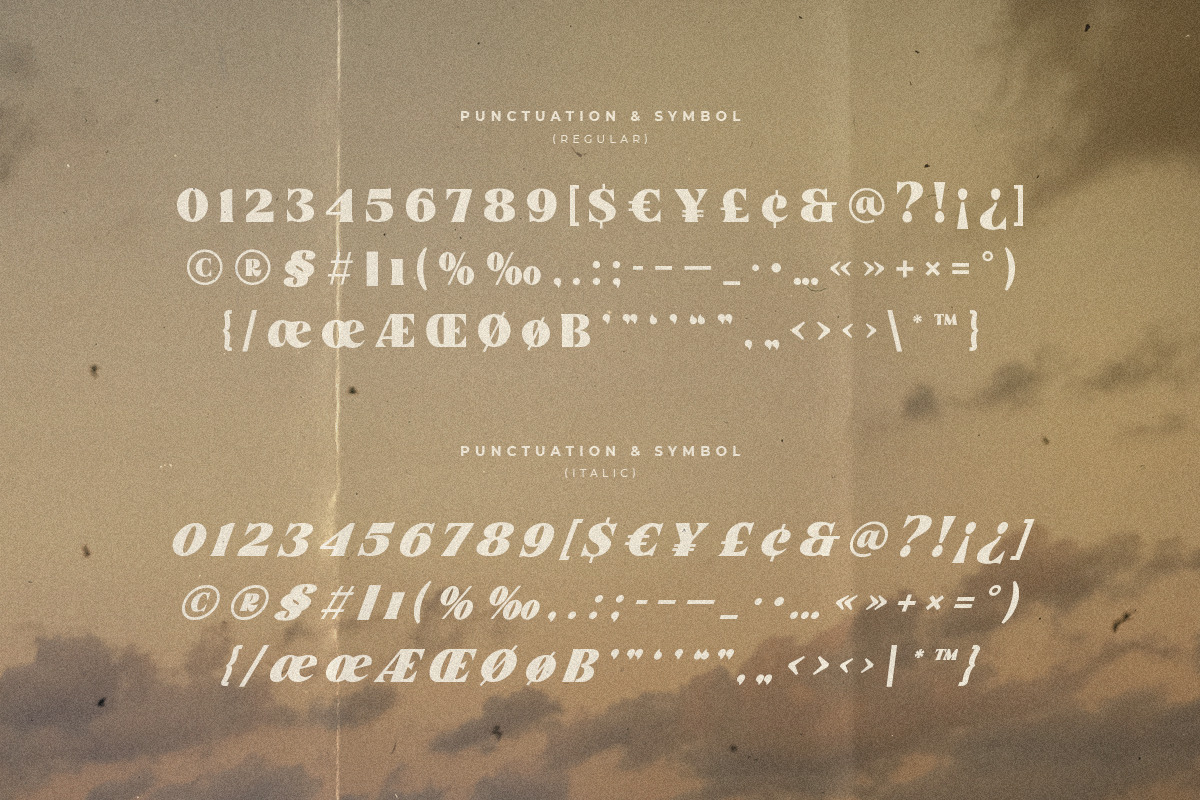 PUNCTUATION & SYMBOL
(REGULAR)
0123456789[$€¥£¢&@?!¡¿]
©®§#Iı(%‰,.:;-–—_·•…«»+×=°)
{/æœÆŒØøB'"‘’“”‚„<>‹›\*™}
PUNCTUATION & SYMBOL
(ITALIC)
0123456789[$€¥£¢&@?!¡¿]
©®§#Iı(%‰,.:;-–—_·•…«»+×=°)
{/æœÆŒØøB'"‘’“”‚„<>‹›|*™}